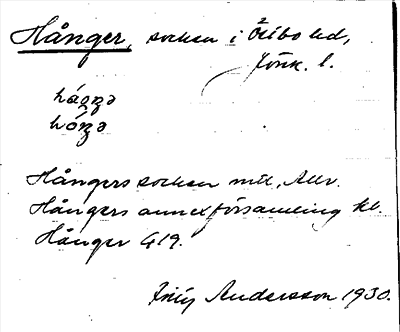 Hånger, socken i Östbo hd,
Jönk. l.
Hångers socken mtl, Allv.
Hångers annexförsamling kl.
Hånger G19.
Andersson 1930.